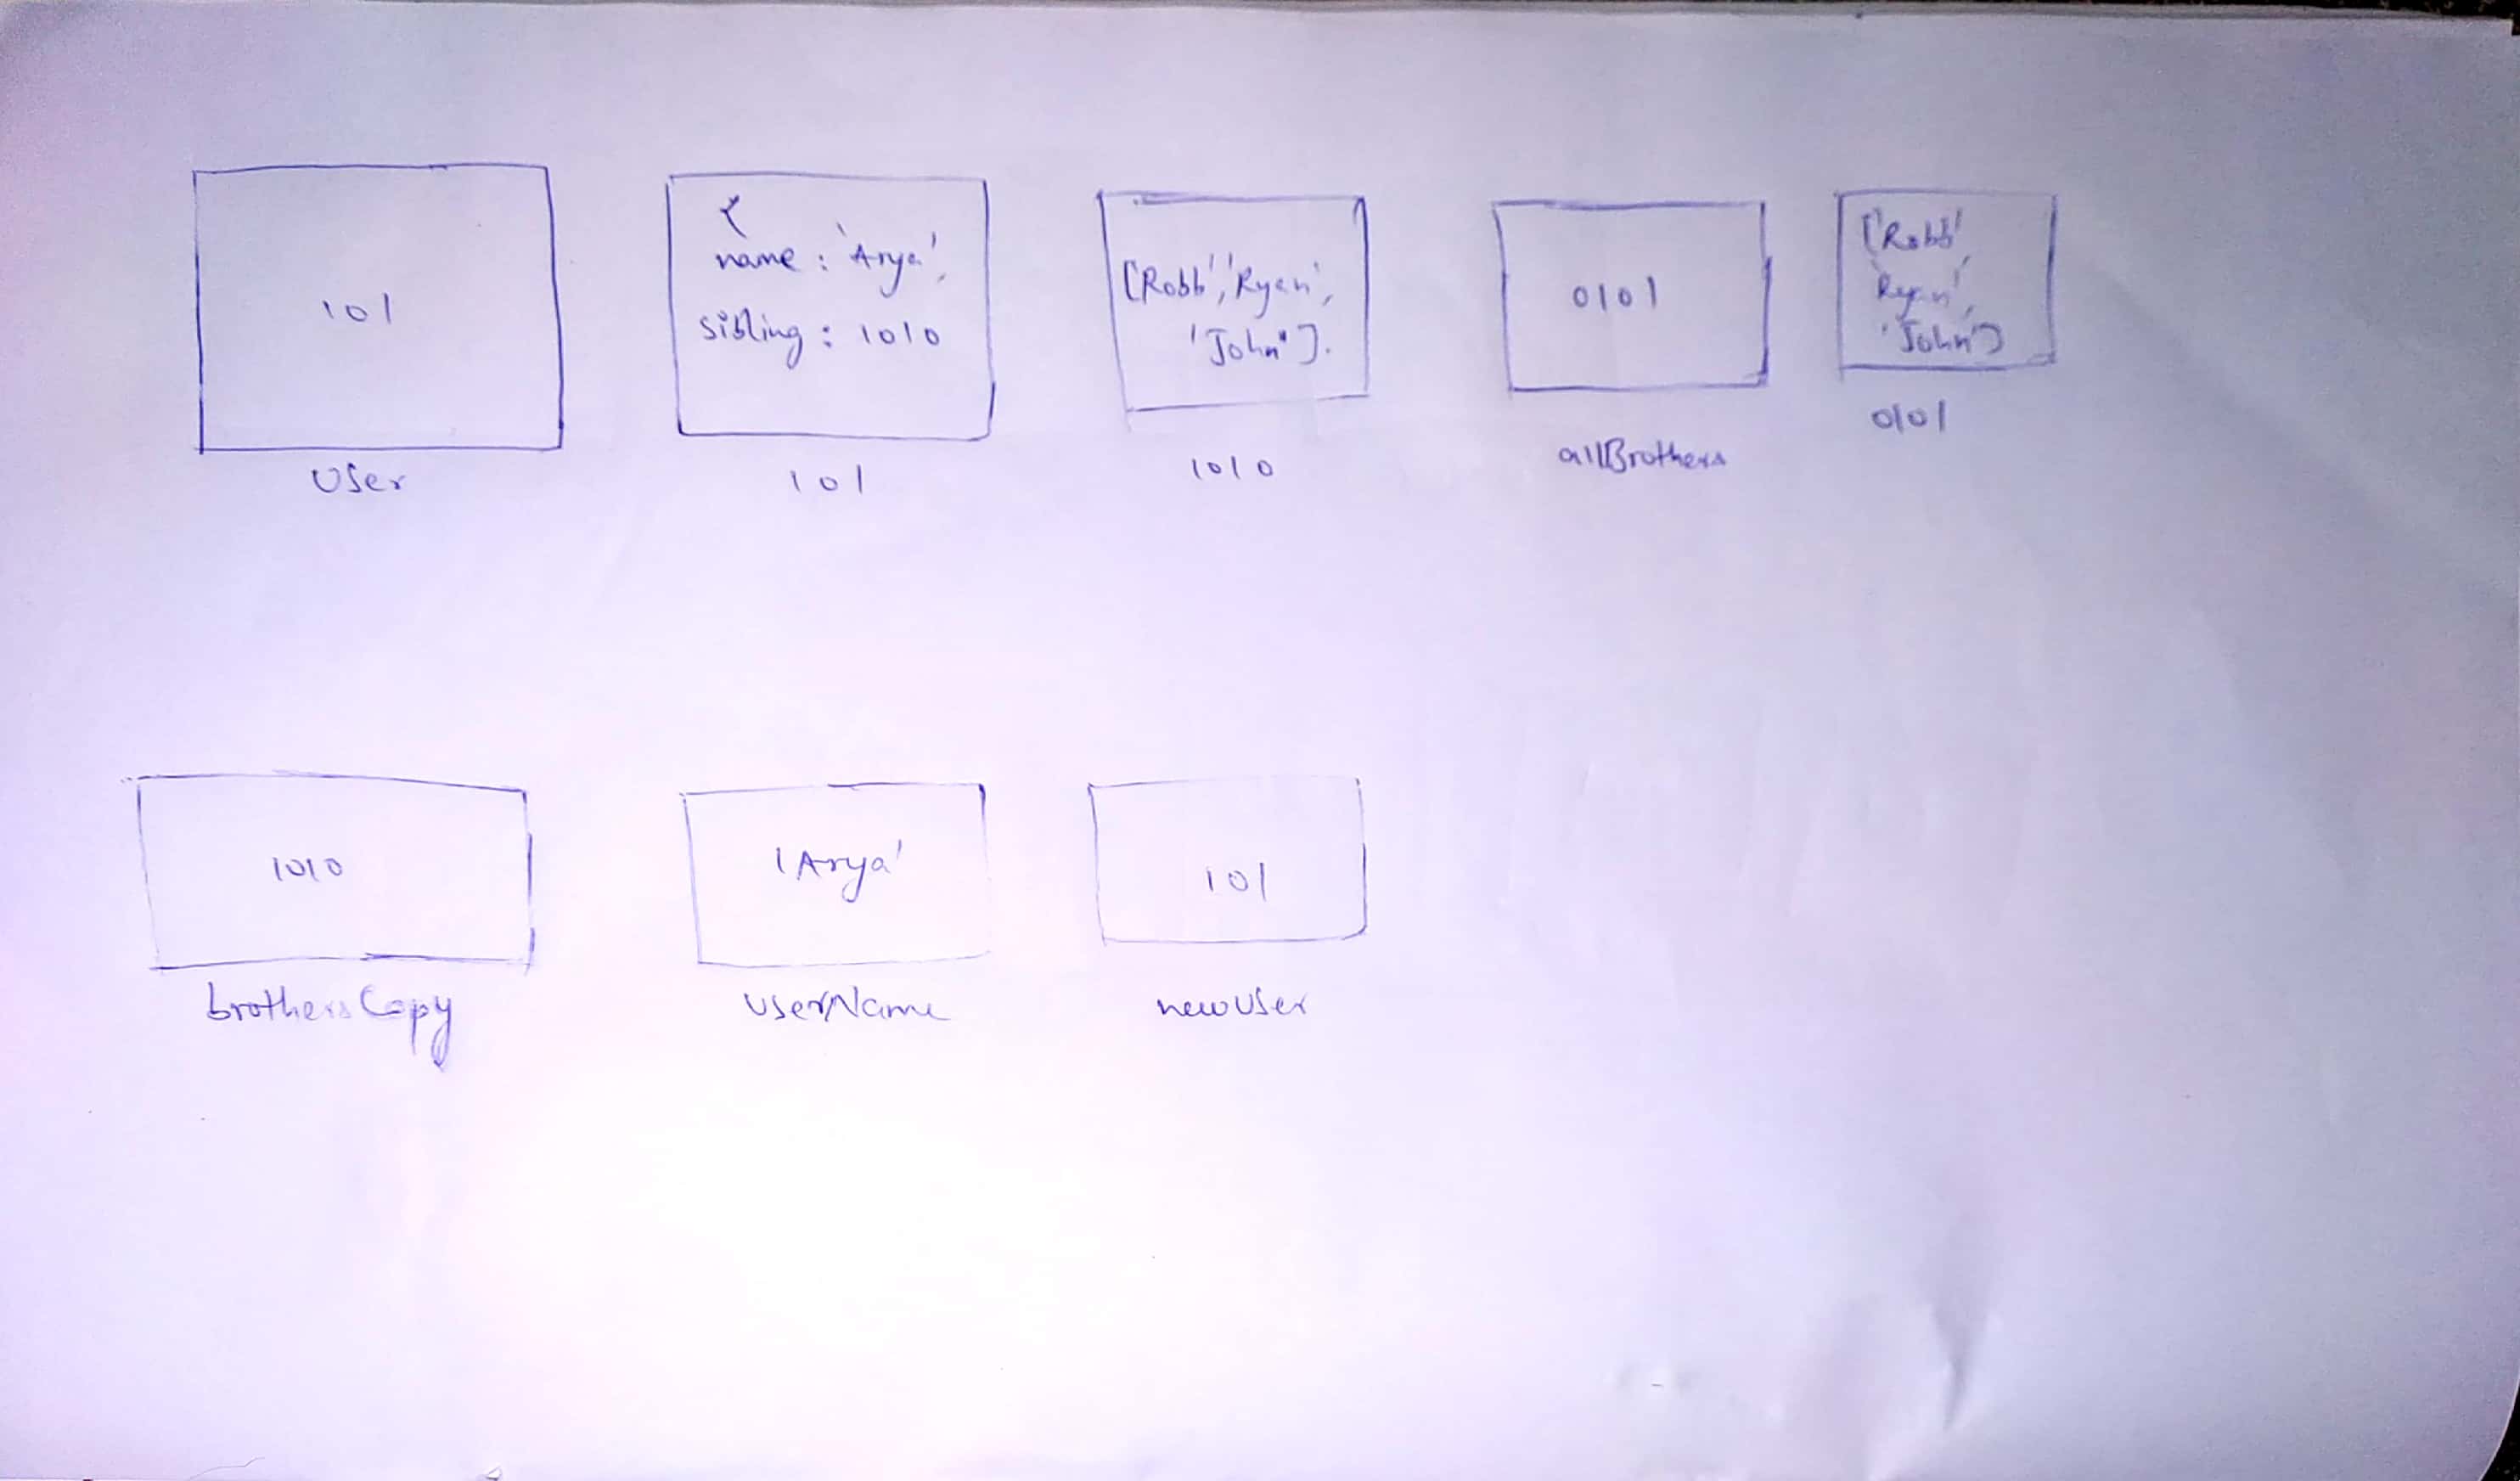 101
User
{
name : 'Arya',
sibling : 1010
101
['Robb', 'Ryan',
'John'].
1010
0101
allBrothers
['Robb'
'Ryan',
'John']
0101
1010
brothersCopy
'Arya'
userName
101
newUser